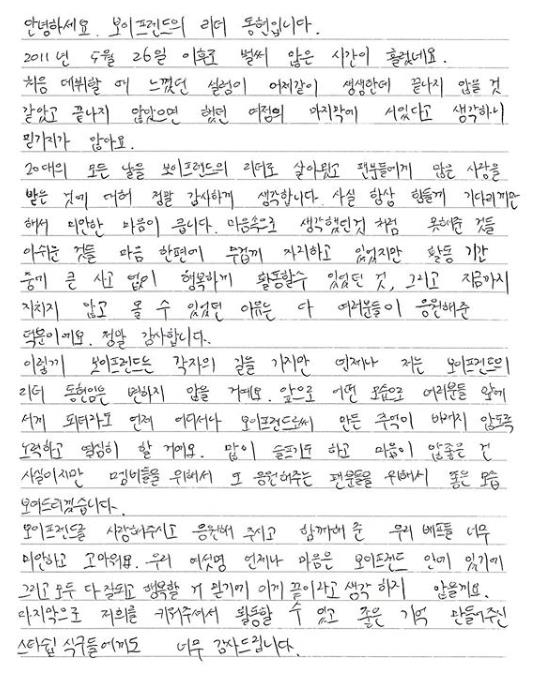 안녕하세요. 보이프렌드의 리더 동현입니다.
2011년 5월 26일 이후로 벌써 많은 시간이 흘렀네요.
처음 데뷔할 때 느꼈던 설렘이 어제같이 생생한데 끝나지 않을 것
같았고 끝나지 않았으면 했던 여정의 마지막에 서있다고 생각하니
믿기지가 않아요.
20대의 모든 날을 보이프렌드의 리더로 살아왔고 팬분들에게 많은 사랑을
받는 것에 대해 정말 감사하게 생각합니다. 사실 항상 힘들게 기다리게만
해서 미안한 마음이 큽니다. 마음속으로 생각했던것 처럼 못해준 것들
아쉬운 것들 마음 한편에 무겁게 자리하고 있었지만 활동 기간
중에 큰 사고 없이 행복하게 활동할수 있었던 것, 그리고 지금까지
지치지 않고 올 수 있었던 이유는 다 여러분들이 응원해준
덕분이에요. 정말 감사합니다.
이렇게 보이프렌드는 각자의 길을 가지만 언제나 저는 보이프렌드의
리더 동현임은 변하지 않을 거예요. 앞으로 어떤 모습으로 여러분들 앞에
서게 되더라도 언제 어디서나 보이프렌드로써 만든 추억이 바래지 않도록
노력하고 열심히 할 거예요. 맘이 슬프기도 하고 마음이 안좋은 건
사실이지만 멤버들을 위해서 또 응원해주는 팬분들을 위해서 좋은 모습
보여드리겠습니다.
보이프렌드를 사랑해주시고 응원해 주시고 함께해 준 우리 베프들 너무
미안하고 고마워요. 우리 여섯명 언제나 마음은 보이프렌드 안에 있기에
그리고 모두 다 잘되고 행복할 거 믿기에 이게 끝이라고 생각 하지 않을게요.
마지막으로 저희를 키워주셔서 활동할 수 있고 좋은 기억 만들어주신
스타쉽 식구들에게도 너무 감사드립니다.